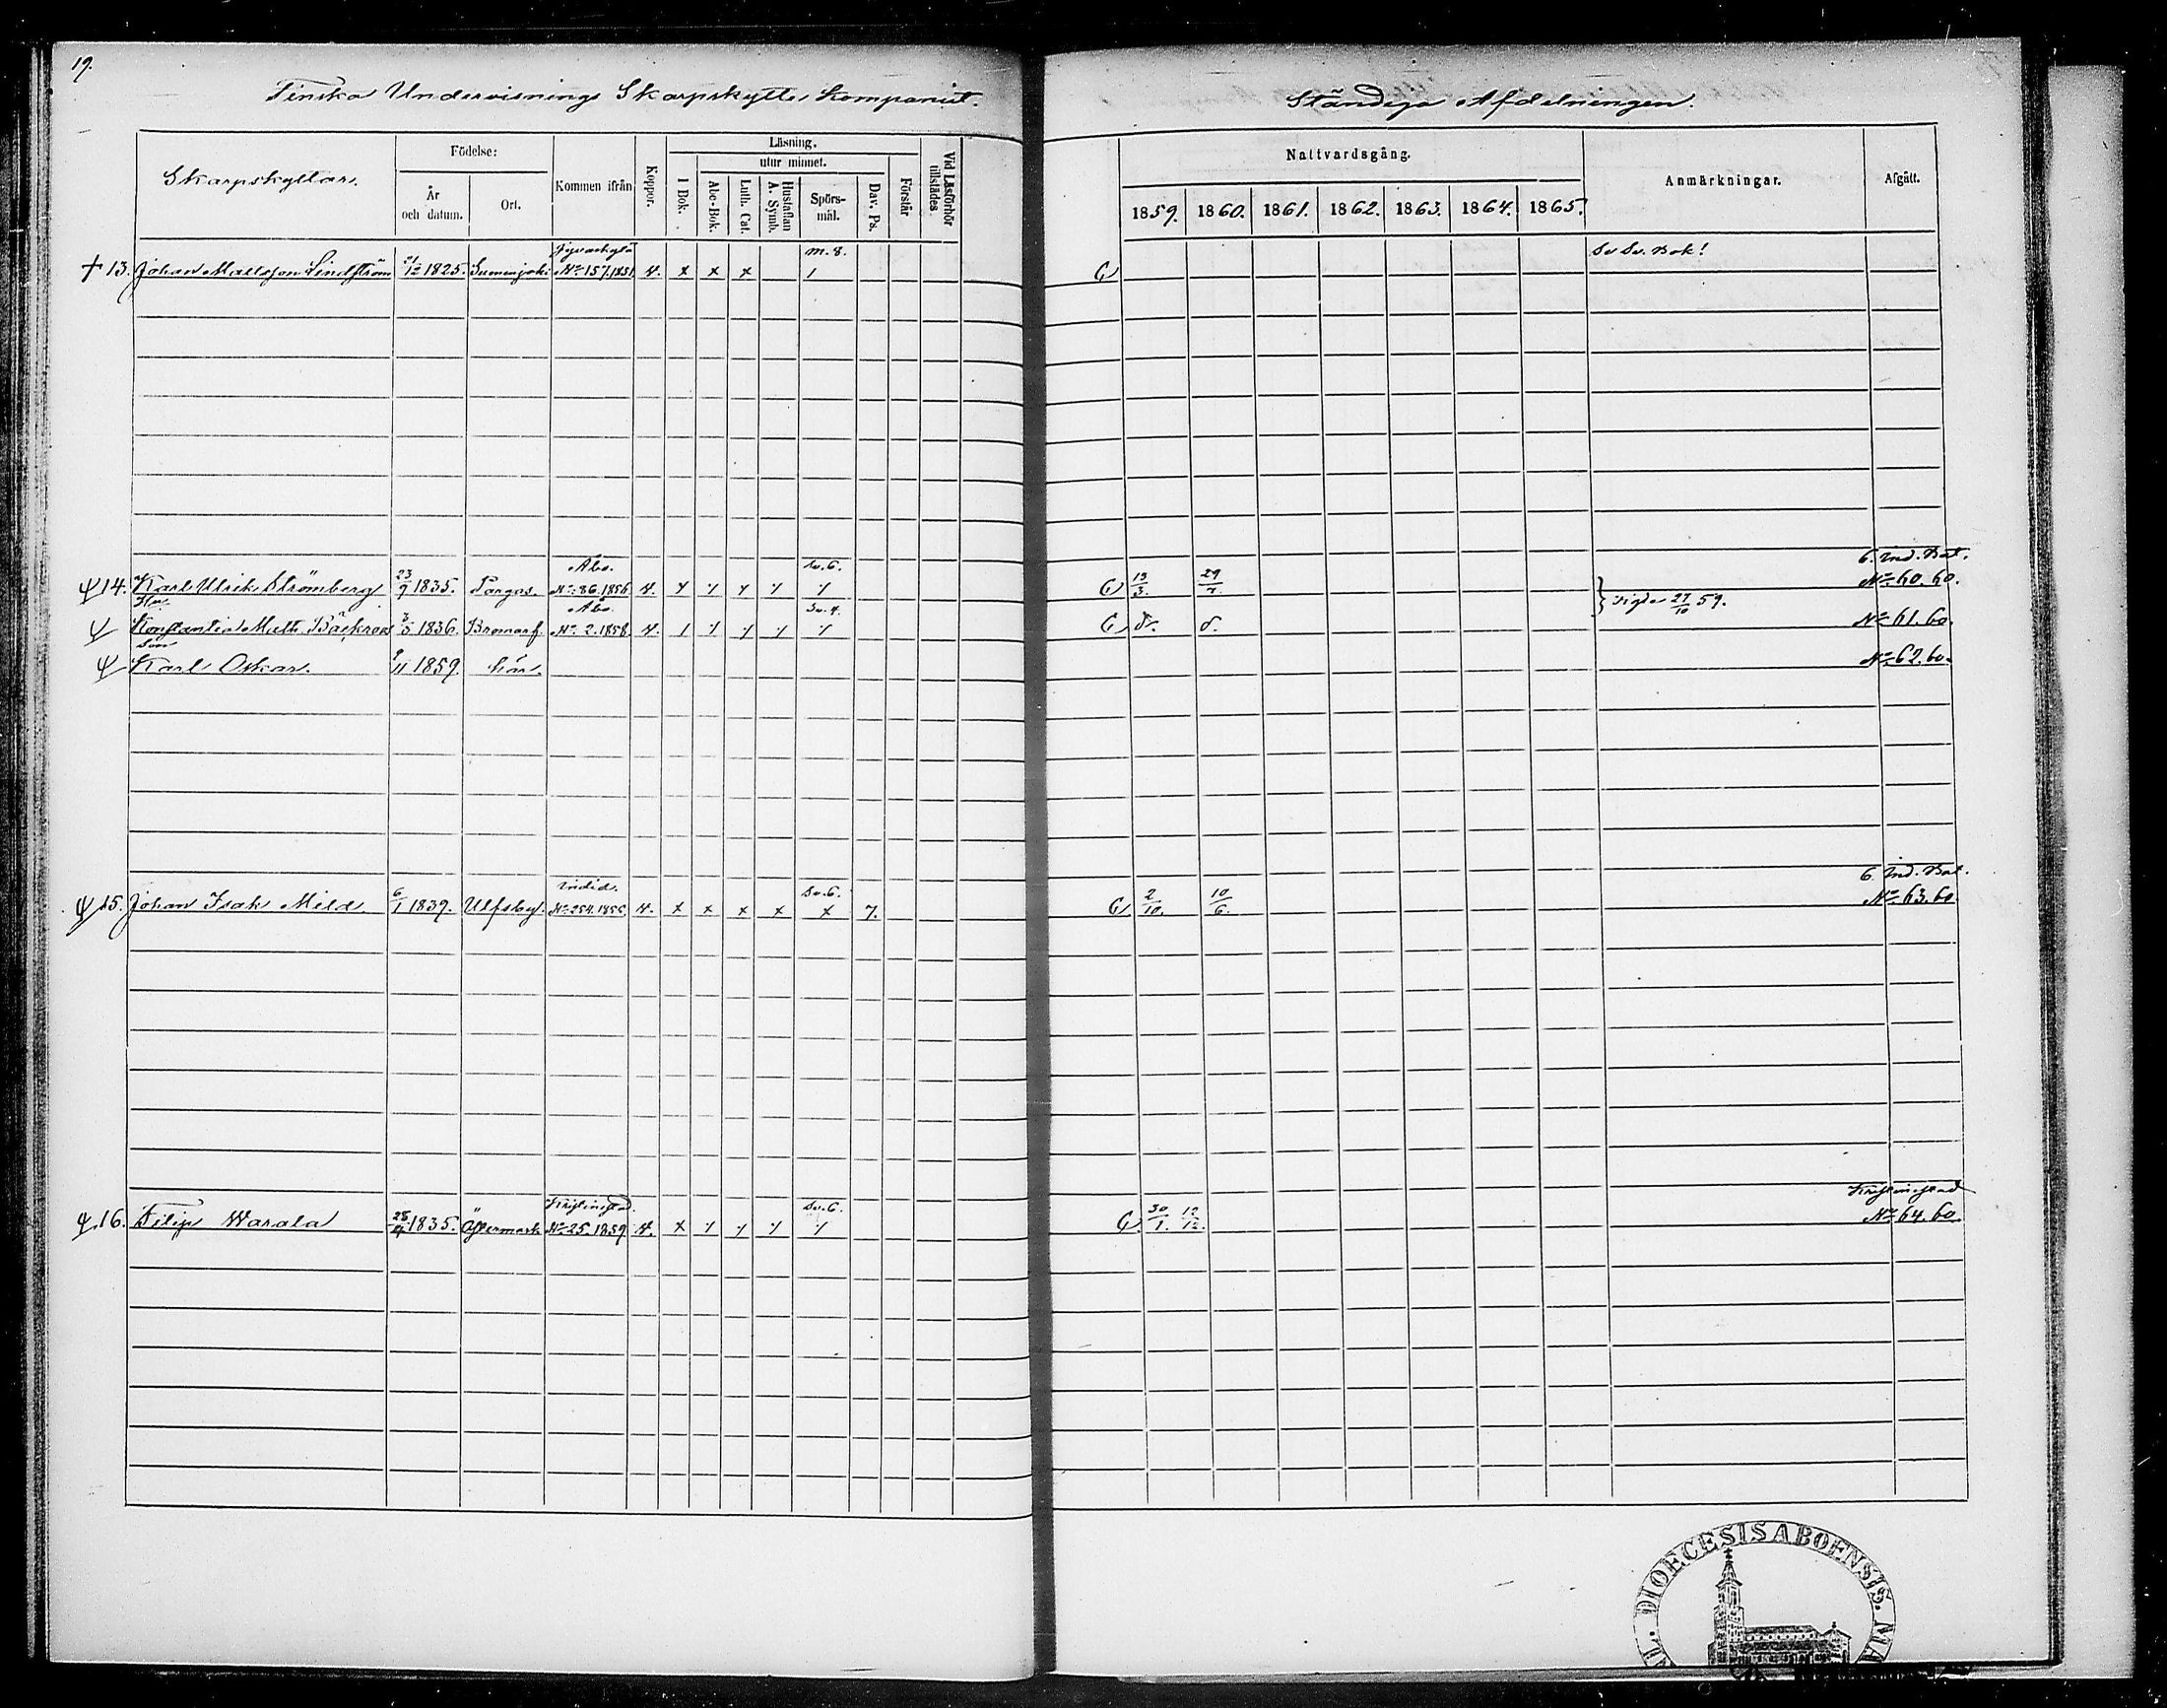 19.
Finska Undervisnings Skarpskytte Kompaniet. Ständiga Afdelningen.
Skarpskyttar. Födelse: Kommen ifrån Koppor. Läsning. Vid Läsförhör tillstädes Nattvardsgång. Anmärkningar. Afgått.
År och datum. Ort. I Bok. utur minnet. Förstår
Abc-Bok. Luth. Cat. Hustaflan A. Symb. Spörsmål. Dav. Ps. 1859. 1860. 1861. 1862. 1863. 1864. 1865.
Jyväskylä m. 8. Bok!
+ 13. Johan Mattsson Lindström 21/12 1825. No 157.1851. 4. x x x 1 G
Åbo. Sv. 6. 6. Ind. Bat.
14. Karl Ulrik Strömberg 23/9 1835. Pargas. No 86.1856. 4. G 13/3. 29/7. No 60.60.
Hu. Åbo. Sv. 4. Vigde 27/10 59.
Konstantia Math. 3/5 1836. Bromarf. No 2.1858. 4. G No 61.60.
Son
Karl Oskar. 9/11 1859. här. No 62.60.
Sv. 6. 6 Ind. Bat.
15. Johan Isak Mild 6/1 1839. Ulfsby. 4. x x x x x 7. G 2/10. 10/6. No 63.60.
Kristinestad. Sv. 6. Kristinestad
16. Filip Warala 1835. Östermark No 25.1859. 4. G 30/1. 12/12. No 64.60.
DIOECESIS ABOENSIS. MA